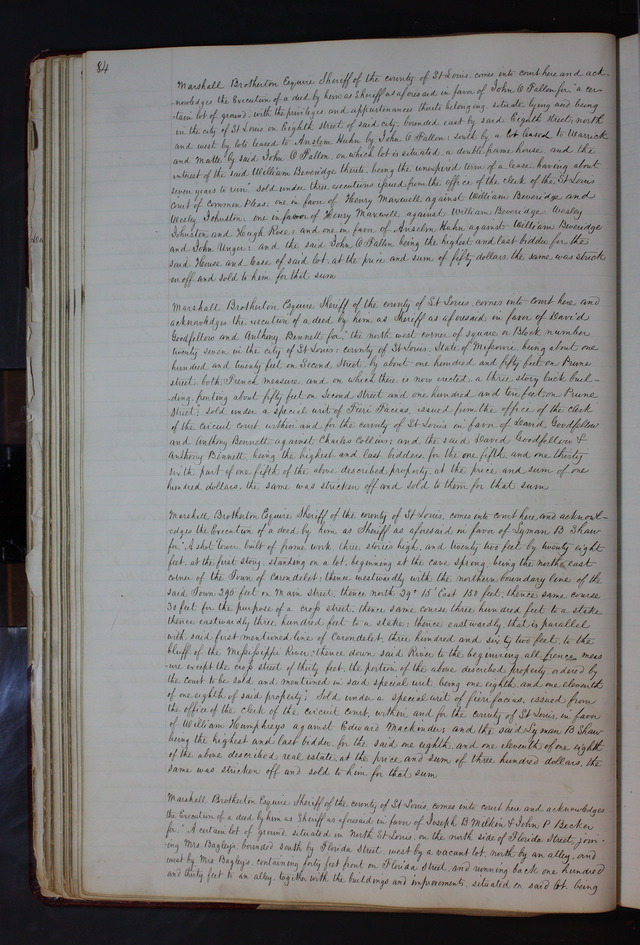 84
Marshall Brotherton Esquire Sheriff of the county of St Louis. comes into court here and ack-
nowledges the Execution of a deed by him as Sheriff as aforesaid in favor of John O Fallon for "a cer-
tain lot of ground, with the privileges and appurtenances thereto belonging situate lying and being
in the city of St Louis on Eighth street of said city; bounded east by said Eighth Street, north
and west by lots leased to Anslem Huhn by John O Fallon; south by a lot leased to Warrick
and Matte, by said John O Fallon, on which lot is situated a double frame house, and the
interest of the said William Beveridge thereto, being the unexpired term of a lease having about
seven years to run" sold under three executions issued from the office of the clerk of the St Louis
court of common Pleas one in favor of Henry Maxwell against William Beveridge and
Wesley Johnston, one in favor of Henry Maxwell against William Beveridge Wesley
Johnston and Hugh Rose; and one in favor of Anselm Huhn against William Beveridge
and John Unger; and the said John O Fallon being the highest and last bidder for the
said House and lease of said lot, at the price and sum of fifty dollars, the same was strick
en off and sold to him for that sum
Marshall Brotherton Esquire Sheriff of the county of St Louis, comes into court here and
acknowledges the execution of a deed by him as Sheriff as aforesaid in favor of David
Goodfellow and Anthony Bennett for; "the north west corner of square or Block number
twenty seven in the city of St Louis; county of St Louis, State of Missouri being about one
hundred and twenty feet on Second Street by about one hundred and fifty feet on Prune
street both French measure, and on which there is now erected a three story brick buil-
ding, fronting about fifty feet on Second Street and one hundred and ten feet on Prune
Street; sold under a special writ of Fieri Facias, issued from the office of the clerk
of the circuit court within and for the county of St Louis in favor of David Goodfellow
and Anthony Bennett against Charles Collins; and the said David Goodfellow &
Anthony Bennett, being the highest and last bidders, for the one fifth and one thirty
sixth part of one fifth of the above described property, at the price and sum of one
hundred dollars, the same was stricken off and sold to them for that sum
Marshall Brotherton Esquire Sheriff of the county of St Louis, comes into court here, and acknowl-
edges the Execution of a deed by him as Sheriff as aforesaid in favor of Lyman B Shaw
for "A shot Tower built of frame work, three stories high, and twenty two feet by twenty eight
feet, at the first story, standing on a lot, beginning at the cave spring, being the north east
corner of the Town of Carondelet; thence westwardly with the northern boundary line of the
said Town 290 feet on Main street, thence north 29° 15' East 150 feet; thence same course
30 feet for the purpose of a cross street, thence same course three hundred feet to a stake,
thence eastwardly three hundred feet to a stake; thence eastwardly that is parallel
with said first mentioned line of Carondelet, three hundred and sixty two feet, to the
bluff of the Mississippi River; thence down said River to the beginning all fience meas
ure except the cross street of thirty feet, the portion of the above described property, ordered by
the court to be sold and mentioned in said special writ being one eighth, and one eleventh
of one eighth of said property; Sold under a special writ of fieri facias, issued from
the office of the clerk of the circuit court, within and for the county of St Louis, in favor
of William Humphreys against Edward Mackinder; and the said Lyman B Shaw
being the highest and last bidder for the said one eighth, and one eleventh of one eighth
of the above described real estate, at the price and sum of three hundred dollars, the
same was stricken off and sold to him for that sum
Marshall Brotherton Esquire Sheriff of the county of St Louis, comes into court here and acknowledges
the Execution of a deed by him as Sheriff as aforesaid in favor of Joseph B Million & John P Becker
for "A certain lot of ground situated in North St Louis, on the north side of Florida Street, join-
ing Mrs Bagleys, bounded south by Florida Street, west by a vacant lot, north by an alley, and
west by Mrs Bagleys, containing forty feet front on Florida Street, and running back one hundred
and thirty feet to an alley, together with the buildings and improvements, situated on said lot, being